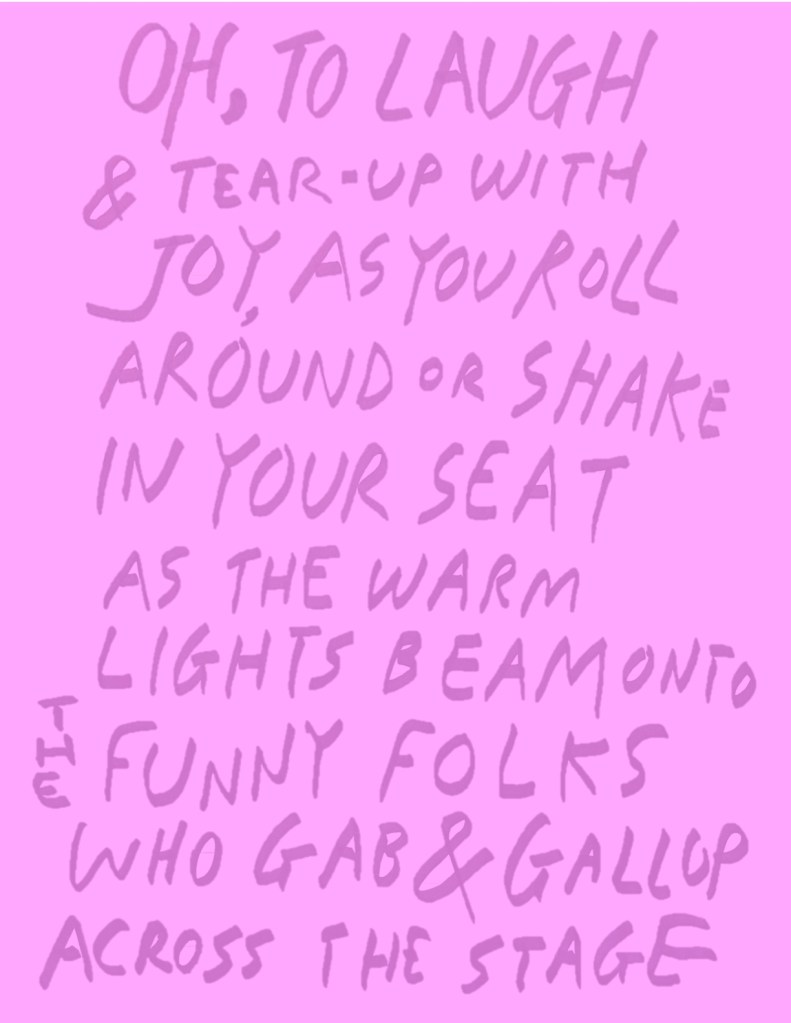 OH, TO LAUGH
& TEAR-UP WITH
JOY, AS YOU ROLL
AROUND OR SHAKE
IN YOUR SEAT
AS THE WARM
LIGHTS BEAM ONTO
THE FUNNY FOLKS
WHO GAB & GALLOP
ACROSS THE STAGE